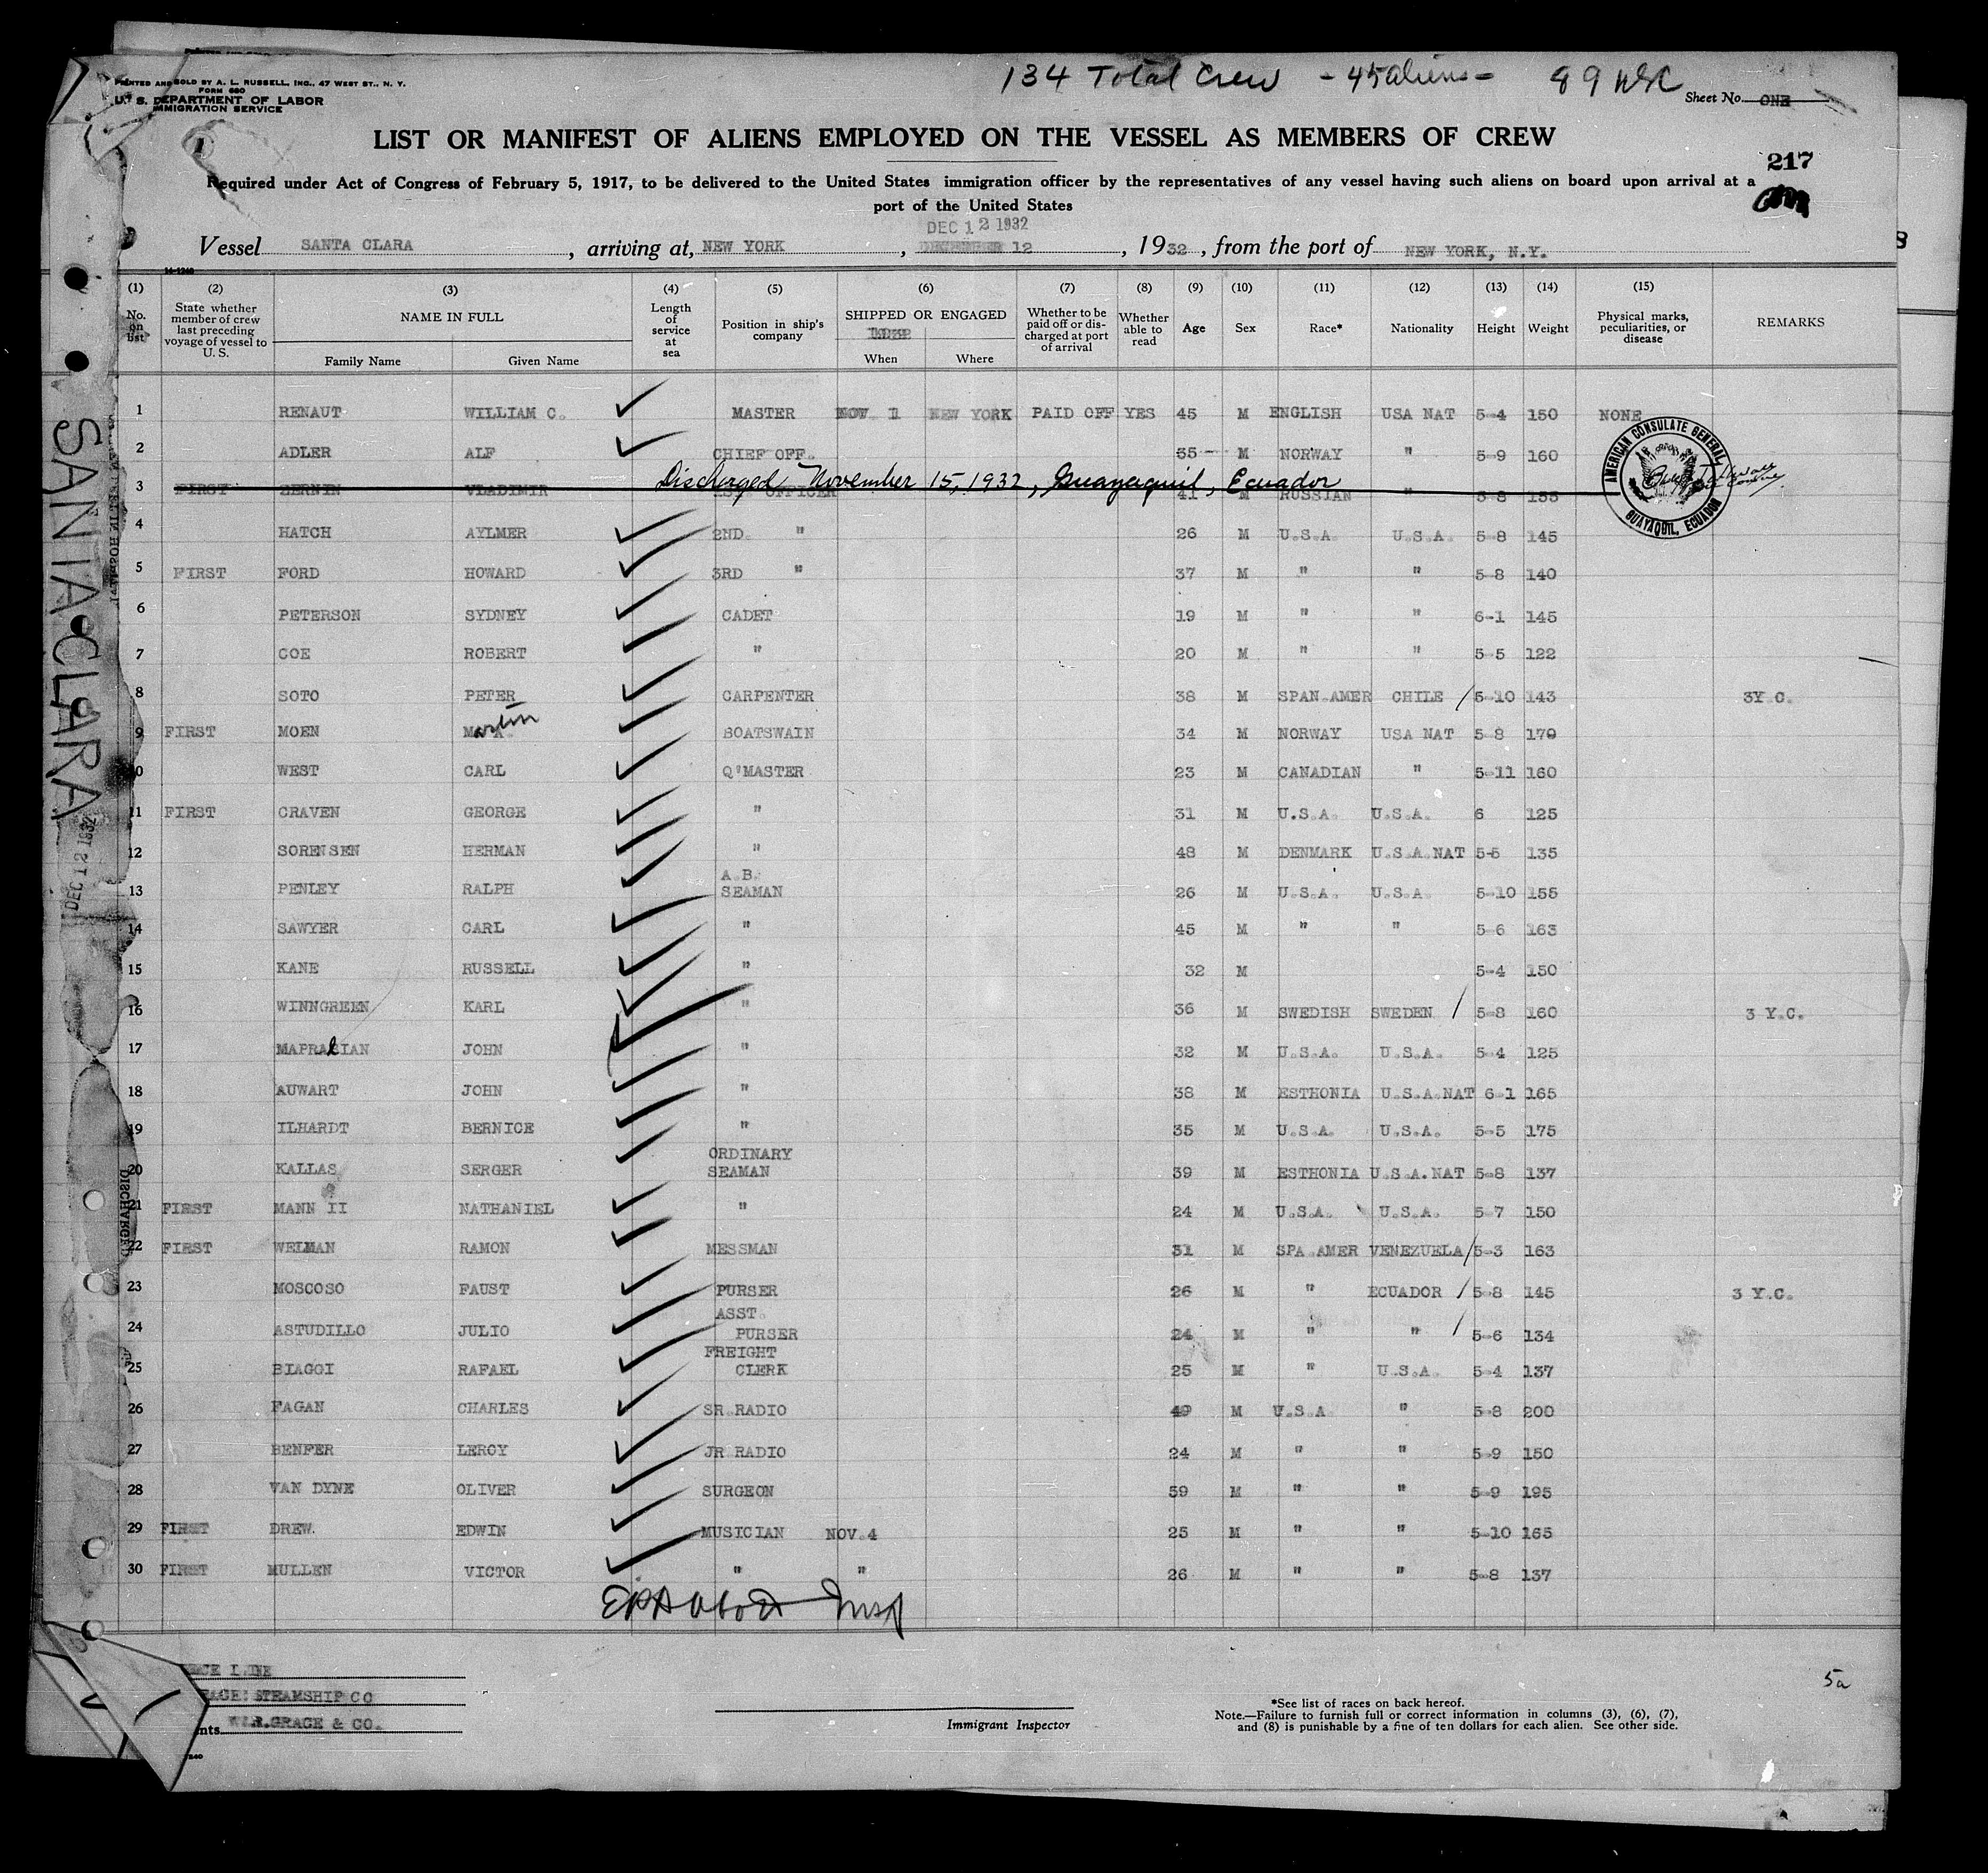 134 Total Crew - 45 aliens - 89 USC
PRINTED AND SOLD BY A. L. RUSSELL, INC., 47 WEST ST., N. Y.
FORM 680
U. S. DEPARTMENT OF LABOR
IMMIGRATION SERVICE
Sheet No. ONE
1
LIST OR MANIFEST OF ALIENS EMPLOYED ON THE VESSEL AS MEMBERS OF CREW
217
Required under Act of Congress of February 5, 1917, to be delivered to the United States immigration officer by the representatives of any vessel having such aliens on board upon arrival at a
port of the United States
DEC 12 1932
Vessel SANTA CLARA, arriving at, NEW YORK, DECEMBER 12, 1932, from the port of NEW YORK, N.Y.
14-1240
(1) (2) (3) (4) (5) (6) (7) (8) (9) (10) (11) (12) (13) (14) (15)
No. on list State whether member of crew last preceding voyage of vessel to U. S. NAME IN FULL Family Name Given Name Length of service at sea Position in ship's company SHIPPED OR ENGAGED When Where Whether to be paid off or discharged at port of arrival Whether able to read Age Sex Race* Nationality Height Weight Physical marks, peculiarities, or disease REMARKS
1 RENAUT WILLIAM C. MASTER NOV. 1 NEW YORK PAID OFF YES 45 M ENGLISH USA NAT 5-4 150 NONE
2 ADLER ALF CHIEF OFF. 55 M NORWAY " 5-9 160
3 FIRST VLADIMIR 1ST OFFICER 41 M RUSSIAN " 5-8 155
Discharged November 15, 1932, Guayaquil, Ecuador
AMERICAN CONSULATE GENERAL
GUAYAQUIL, ECUADOR
4 HATCH AYLMER 2ND. " 26 M U.S.A. U.S.A. 5-8 145
5 FIRST FORD HOWARD 3RD " 37 M " " 5-8 140
6 PETERSON SYDNEY CADET 19 M " " 6-1 145
7 COE ROBERT " 20 M " " 5-5 122
8 SOTO PETER CARPENTER 38 M SPAN.AMER CHILE / 5-10 143 3Y.C.
9 FIRST MOEN Martin BOATSWAIN 34 M NORWAY USA NAT 5-8 179
10 WEST CARL Q'MASTER 23 M CANADIAN " 5-11 160
11 FIRST CRAVEN GEORGE " 31 M U.S.A. U.S.A. 6 125
12 SORENSEN HERMAN " 48 M DENMARK U.S.A.NAT 5-5 135
13 PENLEY RALPH A.B. SEAMAN 26 M U.S.A. U.S.A. 5-10 155
14 SAWYER CARL " 45 M " " 5-6 163
15 KANE RUSSELL " 32 M 5-4 150
16 WINNGREEN KARL " 36 M SWEDISH SWEDEN / 5-8 160 3 Y.C.
17 JOHN " 32 M U.S.A. U.S.A. 5-4 125
18 AUWART JOHN " 38 M ESTHONIA U.S.A.NAT 6-1 165
19 ILHARDT BERNICE " 35 M U.S.A. U.S.A. 5-5 175
20 KALLAS SERGER ORDINARY SEAMAN 39 M ESTHONIA U.S.A.NAT 5-8 137
21 FIRST MANN II NATHANIEL " 24 M U.S.A. U.S.A. 5-7 150
22 FIRST WELMAN RAMON MESSMAN 31 M SPA.AMER VENEZUELA / 5-3 163
23 MOSCOSO FAUST PURSER 26 M " ECUADOR / 5-8 145 3 Y.C.
24 ASTUDILLO JULIO ASST. PURSER 24 M " " / 5-6 134
25 BIAGGI RAFAEL FREIGHT CLERK 25 M " U.S.A. 5-4 137
26 FAGAN CHARLES SR.RADIO 49 M U.S.A. " 5-8 200
27 BENFER LEROY JR RADIO 24 M " " 5-9 150
28 VAN DYNE OLIVER SURGEON 59 M " " 5-9 195
29 FIRST DREW. EDWIN MUSICIAN NOV.4 25 M " " 5-10 165
30 FIRST MULLEN VICTOR " " 26 M " " 5-8 137
SANTA CLARA
DEC 12 1932
DISCHARGED
STEAMSHIP CO
W.R.GRACE & CO.
Immigrant Inspector
5a
*See list of races on back hereof.
Note.—Failure to furnish full or correct information in columns (3), (6), (7),
and (8) is punishable by a fine of ten dollars for each alien. See other side.